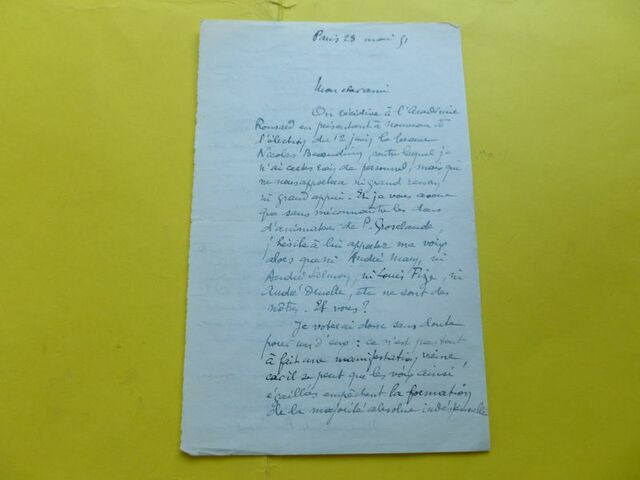 Paris 28 mai 51
Mon cher ami
On récidive à l'Académie
Ronsard en présentant à nouveau à
l'élection du 12 juin le baron
Nicolas Beauduin, contre lequel je
n'ai certes rien de personnel, mais qui
ne nous apportera ni grand renom,
ni grand appui. Et je vous avoue
que sans méconnaître les dons
d'animateur de P. Groslaude,
j'hésite à lui apporter ma voix
alors que ni André Mary, ni
André ni Louis Pize, ni
André Druelle, etc ne sont des
nôtres. Et vous ?
Je voterai donc sans doute
pour un d'eux : ce n'est pas tout
à fait une manifestation vaine,
car il se peut que les voix ainsi
égaillées empêchent la formation
de la majorité absolue indispensable